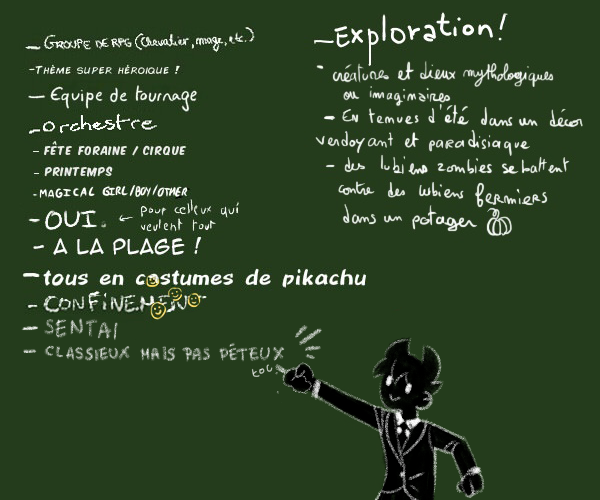 - GROUPE DE RPG (Chevalier, mage, etc.)
- THÈME SUPER HÉROIQUE !
- Equipe de tournage
- orchestre
- FÊTE FORAINE / CIRQUE
- PRINTEMPS
- MAGICAL GIRL/BOY/OTHER
- OUI. ← pour celleux qui
veulent tout
- A LA PLAGE !
- tous en costumes de pikachu
- CONFINEMENT
- SENTAI
- CLASSIEUX MAIS PAS PÉTEUX
toc
- Exploration!
- créatures et dieux mythologiques
ou imaginaires
- En tenues d'été dans un décor
verdoyant et paradisiaque
- des lubiens zombies se battent
contre des lubiens fermiers
dans un potager